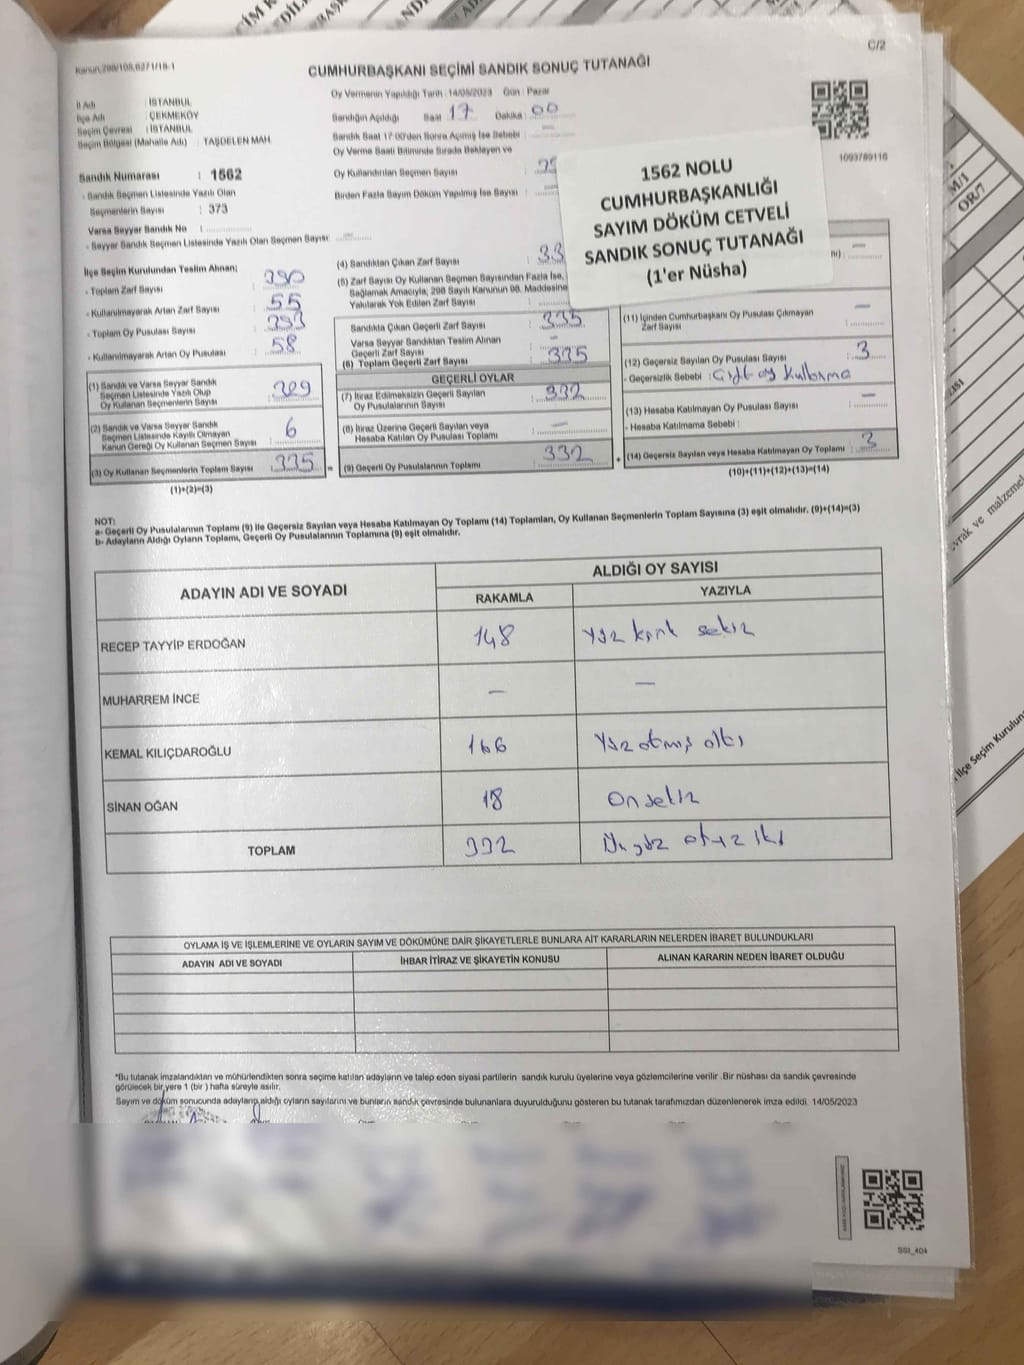 C/2
Kanun,298/105,6271/18-1
CUMHURBAŞKANI SEÇİMİ SANDIK SONUÇ TUTANAĞI
İl Adı : İSTANBUL
İlçe Adı : ÇEKMEKÖY
Seçim Çevresi : İSTANBUL
Seçim Bölgesi (Mahalle Adı) : TAŞDELEN MAH.
Sandık Numarası : 1562
- Sandık Seçmen Listesinde Yazılı Olan
Seçmenlerin Sayısı : 373
Varsa Seyyar Sandık No :
- Seyyar Sandık Seçmen Listesinde Yazılı Olan Seçmen Sayısı: —
Oy Vermenin Yapıldığı Tarih :14/05/2023 Gün : Pazar
Sandığın Açıldığı Saat : 17 Dakika : 00
Sandık Saat 17:00'den Sonra Açılmış İse Sebebi : —
Oy Verme Saati Bitiminde Sırada Bekleyen ve
Oy Kullandırılan Seçmen Sayısı :
Birden Fazla Sayım Döküm Yapılmış İse Sayısı : —
1093789116
1562 NOLU
CUMHURBAŞKANLIĞI
SAYIM DÖKÜM CETVELİ
SANDIK SONUÇ TUTANAĞI
(1'er Nüsha)
İlçe Seçim Kurulundan Teslim Alınan;
- Toplam Zarf Sayısı : 390
- Kullanılmayarak Artan Zarf Sayısı : 55
- Toplam Oy Pusulası Sayısı : 393
- Kullanılmayarak Artan Oy Pusulası : 58
(1) Sandık ve Varsa Seyyar Sandık
Seçmen Listesinde Yazılı Olup
Oy Kullanan Seçmenlerin Sayısı : 329
(2) Sandık ve Varsa Seyyar Sandık
Seçmen Listesinde Kayıtlı Olmayan
Kanun Gereği Oy Kullanan Seçmen Sayısı : 6
(3) Oy Kullanan Seçmenlerin Toplam Sayısı : 335
(1)+(2)=(3)
(4) Sandıktan Çıkan Zarf Sayısı : 33
(5) Zarf Sayısı Oy Kullanan Seçmen Sayısından Fazla İse,
Sağlamak Amacıyla, 298 Sayılı Kanunun 98. Maddesine
Yakılarak Yok Edilen Zarf Sayısı :
Sandıkta Çıkan Geçerli Zarf Sayısı : 335
Varsa Seyyar Sandıktan Teslim Alınan
Geçerli Zarf Sayısı : —
(6) Toplam Geçerli Zarf Sayısı : 335
GEÇERLİ OYLAR
(7) İtiraz Edilmeksizin Geçerli Sayılan
Oy Pusulalarının Sayısı : 332
(8) İtiraz Üzerine Geçerli Sayılan veya
Hesaba Katılan Oy Pusulası Toplamı : —
= (9) Geçerli Oy Pusulalarının Toplamı : 332
(11) İçinden Cumhurbaşkanı Oy Pusulası Çıkmayan
Zarf Sayısı : —
(12) Geçersiz Sayılan Oy Pusulası Sayısı : 3
- Geçersizlik Sebebi : Çift oy kullanma
(13) Hesaba Katılmayan Oy Pusulası Sayısı : —
- Hesaba Katılmama Sebebi :
+ (14) Geçersiz Sayılan veya Hesaba Katılmayan Oy Toplamı : 3
(10)+(11)+(12)+(13)=(14)
NOT:
a- Geçerli Oy Pusulalarının Toplamı (9) ile Geçersiz Sayılan veya Hesaba Katılmayan Oy Toplamı (14) Toplamları, Oy Kullanan Seçmenlerin Toplam Sayısına (3) eşit olmalıdır. (9)+(14)=(3)
b- Adayların Aldığı Oyların Toplamı, Geçerli Oy Pusulalarının Toplamına (9) eşit olmalıdır.
ADAYIN ADI VE SOYADI
ALDIĞI OY SAYISI
RAKAMLA YAZIYLA
RECEP TAYYİP ERDOĞAN 148 Yüz kırk sekiz
MUHARREM İNCE — —
KEMAL KILIÇDAROĞLU 166 Yüz atmış altı
SİNAN OĞAN 18 On sekiz
TOPLAM 332 Üç yüz otuz iki
OYLAMA İŞ VE İŞLEMLERİNE VE OYLARIN SAYIM VE DÖKÜMÜNE DAİR ŞİKAYETLERLE BUNLARA AİT KARARLARIN NELERDEN İBARET BULUNDUKLARI
ADAYIN ADI VE SOYADI İHBAR İTİRAZ VE ŞİKAYETİN KONUSU ALINAN KARARIN NEDEN İBARET OLDUĞU
*Bu tutanak imzalandıktan ve mühürlendikten sonra seçime katılan adayların ve talep eden siyasi partilerin sandık kurulu üyelerine veya gözlemcilerine verilir .Bir nüshası da sandık çevresinde
görülecek bir yere 1 (bir ) hafta süreyle asılır.
Sayım ve döküm sonucunda adayların aldığı oyların sayılarını ve bunların sandık çevresinde bulunanlara duyurulduğunu gösteren bu tutanak tarafımızdan düzenlenerek imza edildi. 14/05/2023
SSI_404
M/1
OR/7
evrak ve malzemel
İlçe Seçim Kurulun